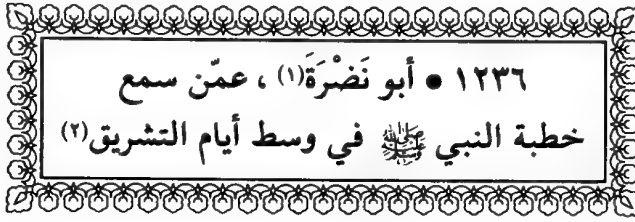 ١٢٣٦ ● أبو نَضْرَةَ(١) ، عمّن سمع
خطبة النبي ﷺ في وسط أيام التشريق(٢)